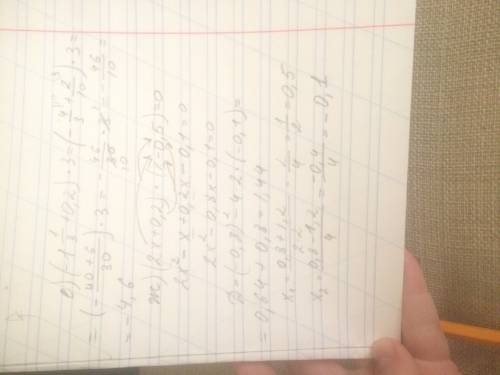 е) (-1 1/3 + 0,2) · 3 = (- 4/3 + 2/10) · 3 =
= (- 40+6/30) · 3 = - 46/30 · 3 = - 46/10 =
= -4,6
ж) (2x+0,2) · (x-0,5)=0
2x² - x + 0,2x - 0,1 = 0
2x² - 0,8x - 0,1 = 0
D = (-0,8)² - 4·2·(-0,1) =
= 0,64 + 0,8 = 1,44
x₁ = 0,8+1,2/2·2 = 2/4 = 1/2 = 0,5
x₂ = 0,8-1,2/4 = -0,4/4 = -0,1